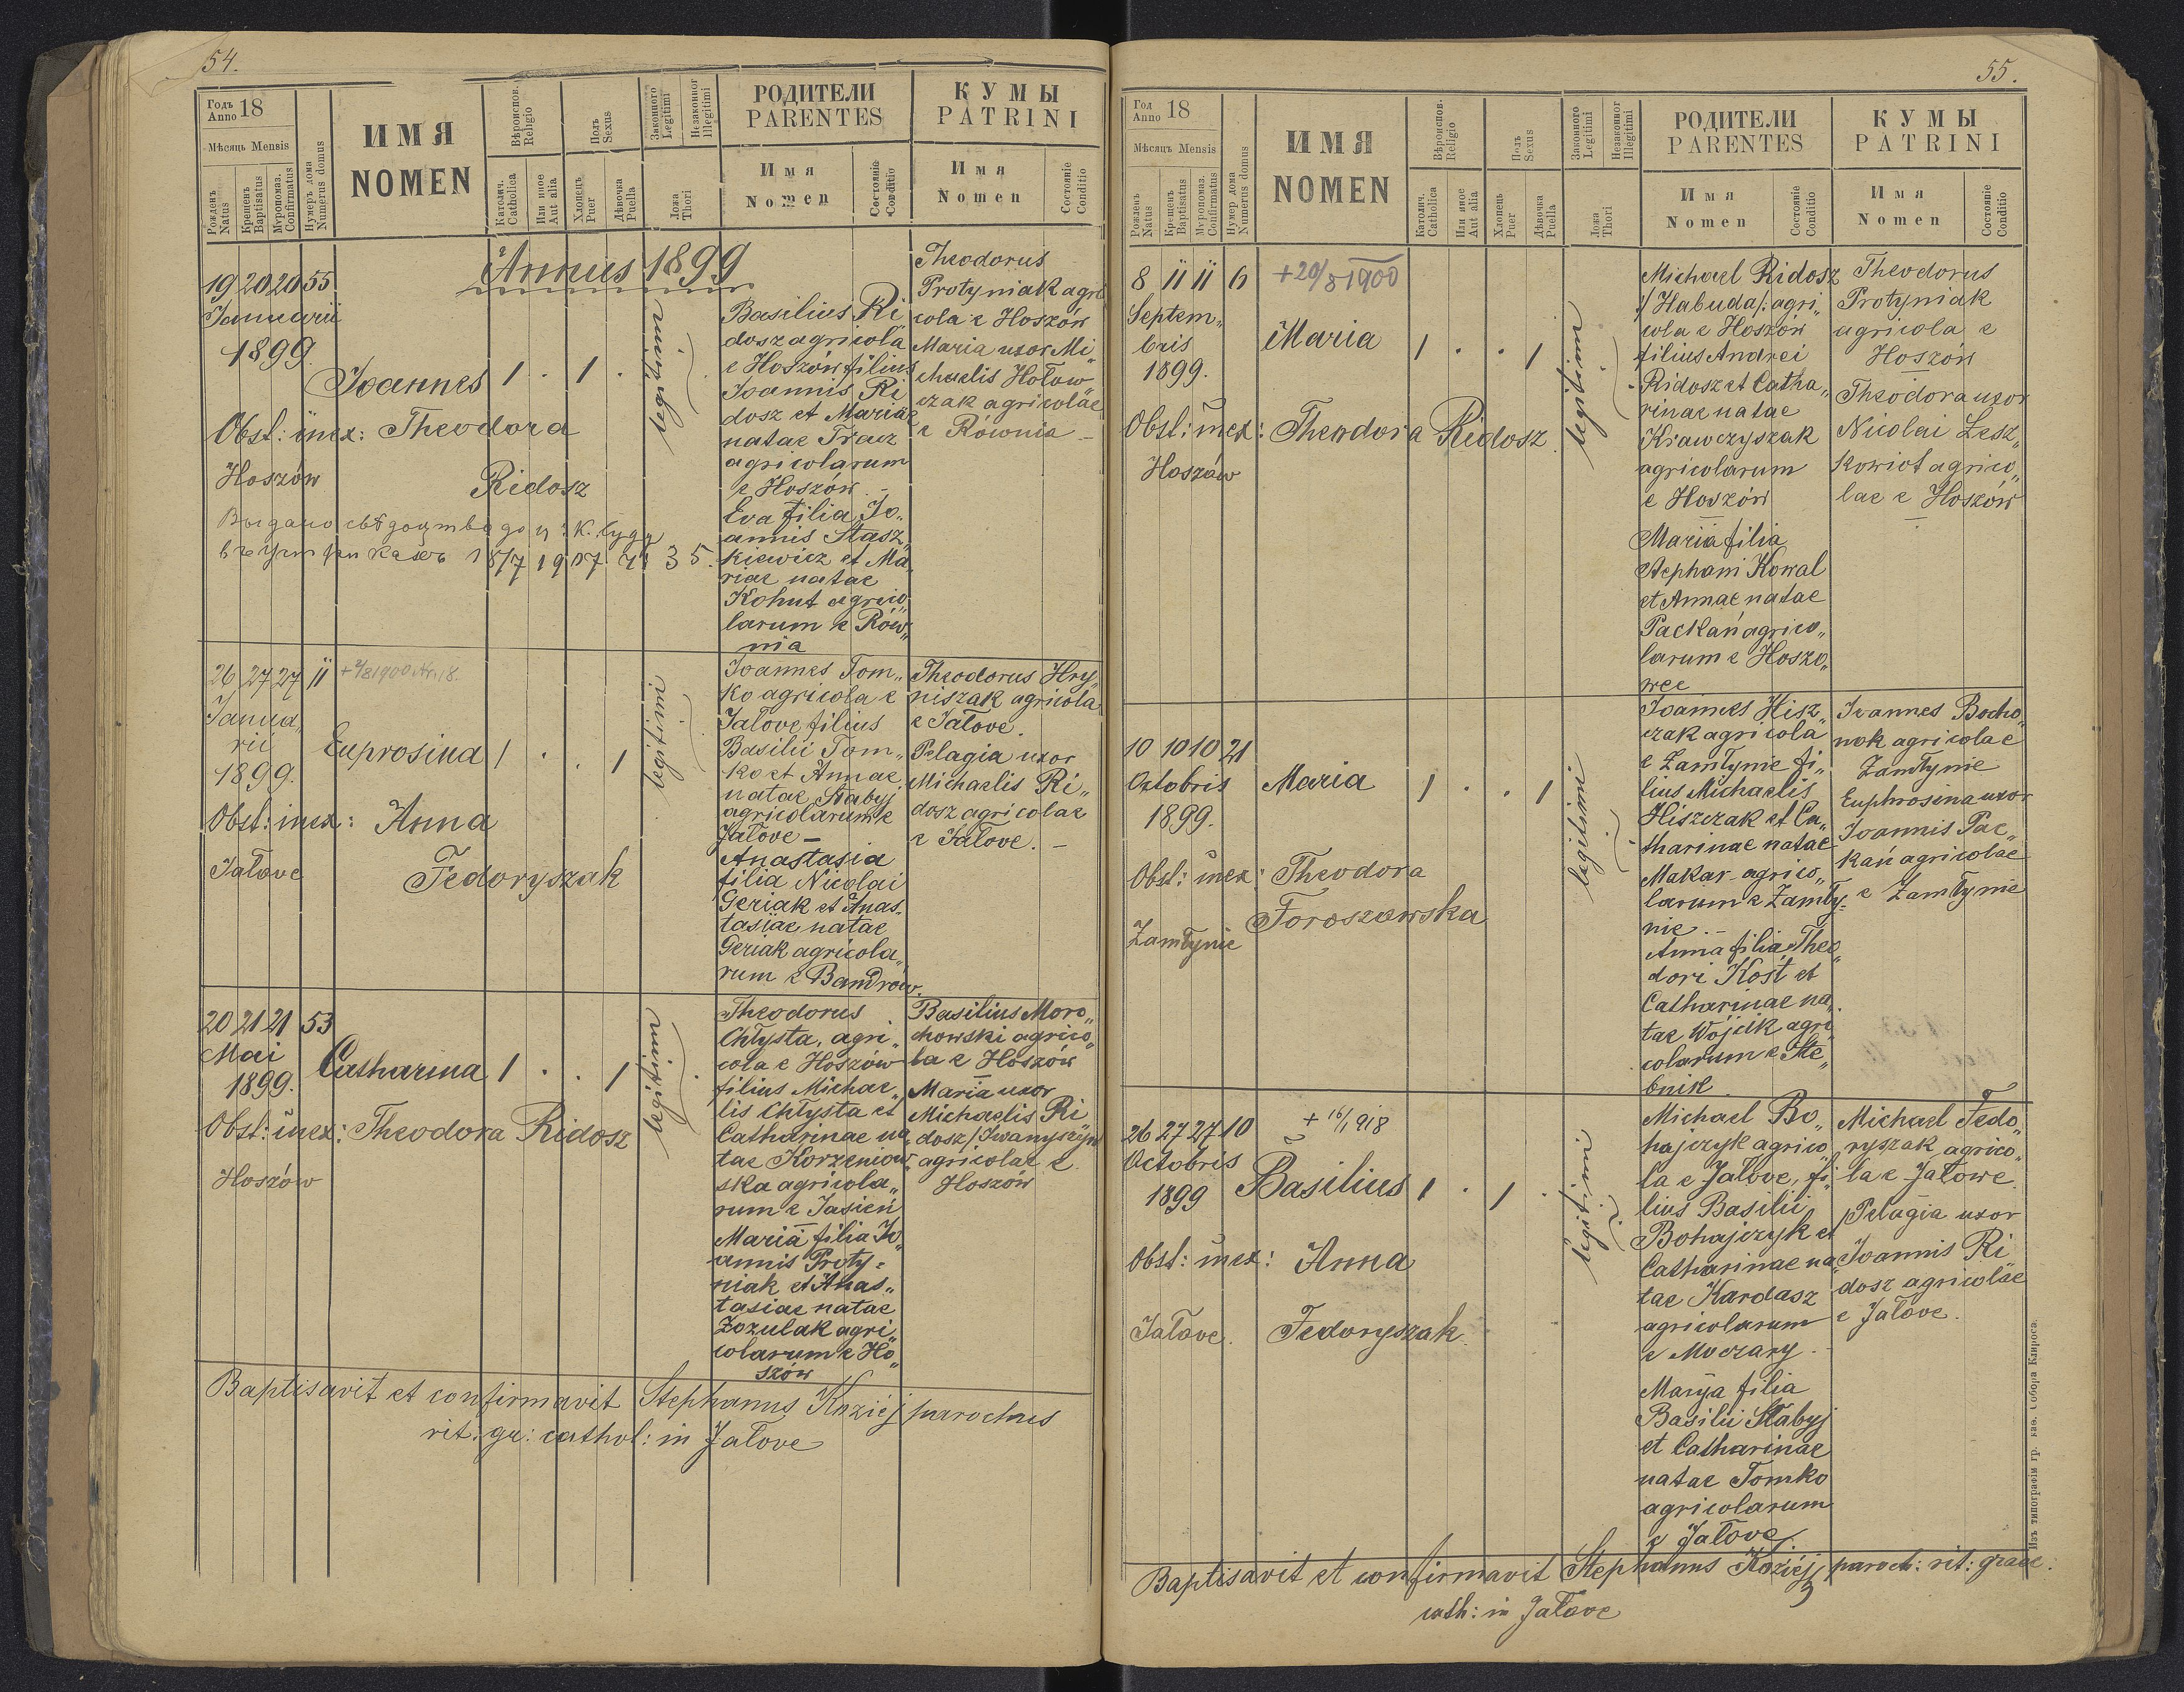 54.
Годъ Anno 18
Мѣсяць Mensis
Рожденъ Natus
Крещенъ Baptisatus
Муропомаз. Confirmatus
Нумеръ дома Numerus domus
ИМЯ
NOMEN
Вѣроиспов. Religio
Католич. Catholica
Или иное Aut alia
Полъ Sexus
Хлопецъ Puer
Дѣвочка Puella
Законного Legitimi
Незаконног Illegitimi
Ложа Thori
РОДИТЕЛИ
PARENTES
Имя
Nomen
Состоянiе Conditio
КУМЫ
PATRINI
Имя
Nomen
Состоянiе Conditio
Annus 1899
19 20 20 55
Januarii
1899.
Joannes 1 . 1 .
Obst: inex: Theodora
Hoszów Ridosz
18/7 1907 35.
legitimi
Basilius Ri
dosz agricola
e Hoszów filius
Joannis Ri
dosz et Mariae
natae Tracz
agricolarum
e Hoszów. -
Eva filia Jo„
annis Stasz„
kiewicz et Ma„
riae natae
Kohut agrico„
larum e Rów„
nia
Theodorus
Protyniak agri
cola e Hoszów
Maria uxor Mi„
chaelis Hołow„
czak agricolae
e Równia -
26 27 27 11
Janua„
rii
1899.
Euprosina 1 . . 1
Obst: inex: Anna
Jałove Fedoryszak
legitimi
Joannes Tom„
ko agricola e
Jałove filius
Basilii Tom„
ko et Annae
natae Słabyj
agricolarum e
Jałove -
Anastasia
filia Nicolai
Geriak et Anas„
tasiae natae
Geriak agricola„
rum e Bandrów.
Theodorus Hry„
niszak agricola
e Jałove.
Pelagia uxor
Michaelis Ri„
dosz agricolae
e Jałove. -
20 21 21 53
Mai
1899.
Catharina 1 . . 1
Obst: inex: Theodora Ridosz
Hoszów
legitimi
Theodorus
Chłysta, agri„
cola e Hoszów
filius Michae„
lis Chłysta et
Catharinae na„
tae Korzeniow„
ska agricola„
rum e Jasień
Maria filia Jo„
annis Proty=
niak et Anas„
tasiae natae
Zozulak agri„
colarum e Ho„
szów
Basilius Moro„
chowski agrico„
la e Hoszów
Maria uxor
Michaelis Ri
dosz /Iwanyszyn
agricolae e
Hoszów
Baptisavit et confirmavit Stephanus Koziej parochus
rit: gr: cathol: in Jałove
55.
Год Anno 18
Мѣсяцъ Mensis
Рожденъ Natus
Крещенъ Baptisatus
Муропомаз. Confirmatus
Нумер дома Numerus domus
ИМЯ
NOMEN
Вѣроиспов. Religio
Католич. Catholica
Или иное Aut alia
Полъ Sexus
Хлопець Puer
Дѣвочка Puella
Законного Legitimi
Незаконног Illegitimi
Ложа Thori
РОДИТЕЛИ
PARENTES
Имя
Nomen
Состоянiе Conditio
КУМЫ
PATRINI
Имя
Nomen
Состоянiе Conditio
8 11 11 6 +20/8 1900
Septem„
bris
1899.
Maria 1 . . 1
Obst: inex: Theodora Ridosz
Hoszów
legitimi
Michael Ridosz
/:Habuda/: agri„
cola e Hoszów
filius Andrei
Ridosz et Catha„
rinae natae
Krawczyszak
agricolarum
e Hoszów
Maria filia
Stephani Kowal
et Annae natae
Packań agrico„
larum e Hoszo„
wce
Theodorus
Protyniak
agricola e
Hoszów
Theodora uxor
Nicolai Lesz„
kowiot agrico„
lae e Hoszów
10 10 10 21
Octobris
1899.
Maria 1 . . 1
Obst: inex: Theodora
Toroszowska
Zamłynie
legitimi
Joannes Hisz„
czak agricola
e Zamłynie fi„
lius Michaelis
Hiszczak et Ca„
tharinae natae
Makar agrico„
larum e Zamły=
nie. -
Anna filia Theo„
dori Kost et
Catharinae na„
tae Wójcik agri
colarum e Ste„
bnik
Joannes Bocho„
nok agricola e
Zamłynie
Euphrosina uxor
Joannis Pac„
kań agricolae
e Zamłynie
26 27 27 10 + 16/1 918
Octobris
1899
Basilius 1 . 1 .
Obst: inex: Anna
Jałove. Fedoryszak
legitimi
Michael Bo„
hajczyk agrico„
la e Jałove, fi„
lius Basilii
Bohajczyk et
Catharinae na„
tae Kardasz
agricolarum
e Moczary. -
Marya filia
Basilii Słabyj
et Catharinae
natae Tomko
agricolarum
e Jałove.
Michael Fedo„
ryszak agrico„
la e Jałowe
Pelagia uxor
Joannis Ri
dosz agricolae
e Jałove.
Baptisavit et confirmavit Stephanus Koziej paroch: rit: graec.
cath: in Jałove
Изъ типографiи гр. кав. Собора Клироса.